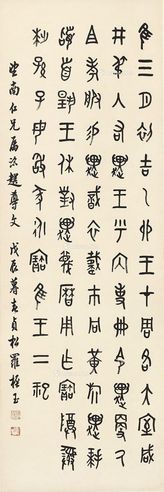 隹三月初吉乙卯王才周各大室咸
井叔入右趩王乎內史冊令趩更厥
且考服易趩戠衣載巿冋黃旂趩拜
稽首揚王休對趩蔑曆用乍寶尊彝
世孫子毋敢彖永寶隹王二祀
南仁兄屬臨趩尊文 戊辰暮春貞松羅振玉